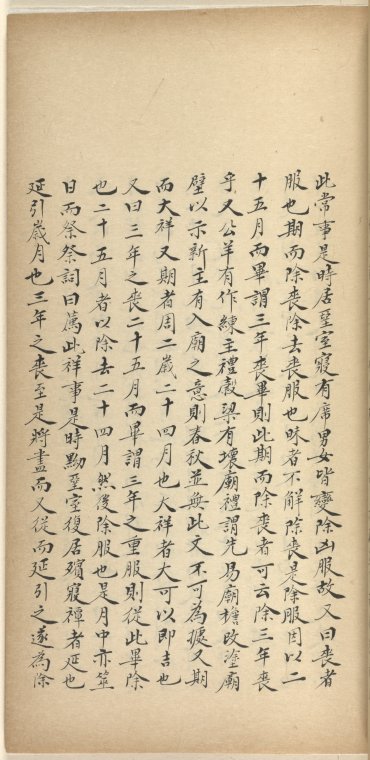 此常事是時居堊室寢有席男女皆變除凶服故又曰喪者
服也期而除喪除去喪服也昧者不解除喪是除服因以二
十五月而畢謂三年喪畢則此期而除喪者可云除三年喪
乎又公羊有作練主禮穀梁有壞廟禮謂先易廟檐改塗廟
壁以示新主有入廟之意則春秋並無此文不可為據又期
而大祥又期者周二歲二十四月也大祥者大可以即吉也
又曰三年之喪二十五月而畢謂三年之重服則從此畢除
也二十五月者以除去二十四月然後除服也是月中亦筮
日而祭祭詞曰薦此祥事是時黝堊室復居殯寢禫者延也
延引歲月也三年之喪至是將盡而又從而延引之遂為除